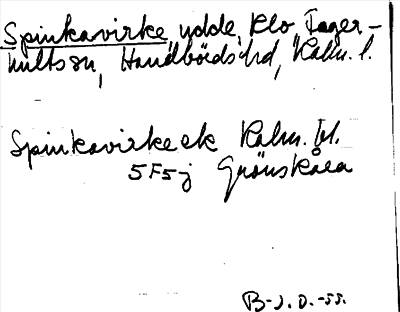 Spinkavirke, udde, Klo Fager-
hultssn, Handbördshd, Kalm. l.
Spinkavirke ek Kalm. bl.
5F5j Grönskåra
B-J. O. -55.